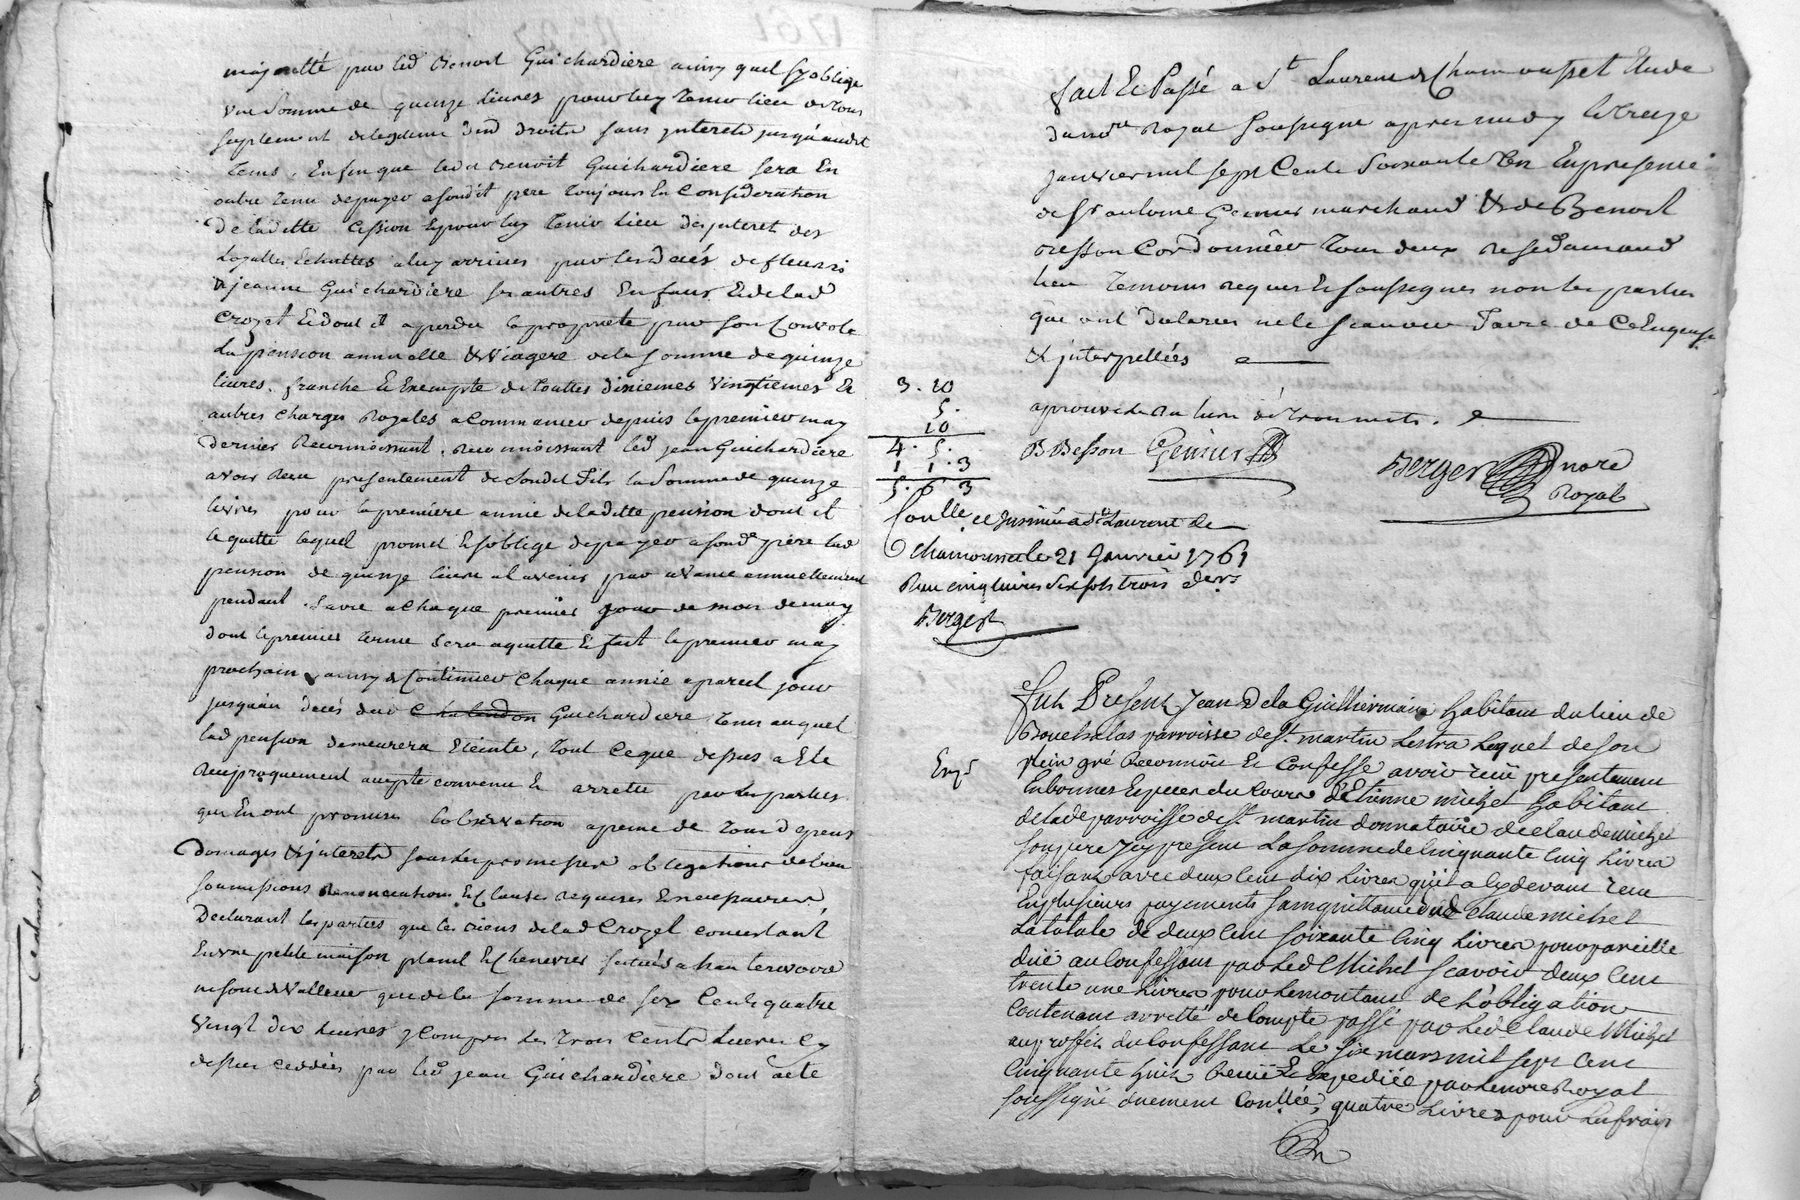 majorité par led Benoit Guichardiere ainsy quil sy oblige
une somme de quinze Livres pour luy tenir lieu de tous
suplement de legitime d droits sans interets jusqu'audit
tems, Enfin que led Benoit Guichardiere sera En
outre tenu de payer a sondit pere toujours En Consideration
De laditte Cession Et pour luy tenir lieu des interet des
Legattes Echuttes a luy arrivées par les décés de fleurri
& jeanne Guichardiere ses autres Enfans Et de lad
Crozet Et dont il a perdu la proprieté par son Convole
La pension annuelle & viagere de la somme de quinze
livres. franche Et Exempte de touttes dixiemes vingtiemes Et
autres charges Royales a Commancer depuis le premier may
dernier Reconnoissant. Reconnoissant led jean Guichardiere
avoir Receu presentement de sondit fils la somme de quinze
livres pour la premiere année de laditte pension dont il
le quitte lequel promet Et s'oblige de payer a sond pere lad
pension de quinze livres a l'avenir par avance annuellement
pendant sa vie a Chaque premier jour de mois de may
dont le premier terme sera aquitté Et fait le premier may
prochain, ainsy & Continuer Chaque année a pareil jour
jusqu'au décés dud Chalandon Guichardiere, tems auquel
lad pension demeurera Eteinte, tout Ce que dessus a Eté
Reciproquement accepté convenu Et arretté par les parties
qui En ont promis l'observation a peine de tous depens
Domages & interets sous les promesses obligations de biens
soumissions Renonciations Et Clauses requises Et necessaires,
Declarant les parties que les biens de lad Crozet consistant
En une petite maison plant Et Chenevier situés a hauterivoire
ne sont de Valleur que de la somme de six Cents quatre
Vingt dix livres y Compris les trois Cents livres Cy
dessus cedées par led jean Guichardiere dont acte
fait Et Passé a St Laurent de Chamousset Etude
du nore Royal soussigné apres midy le treize
janvier mil sept Cents soixante un En presence
de Sr antoine Genier marchand & de Benoit
Besson Cordonnier tous deux residants aud
lieu temoins requis Et soussignés non les parties
qui ont Declarer ne le scavoir faire de Ce Enquises
& interpellées
3. 10
5.
10
4. 5.
1 1. 3
5. 6 3
B Besson Genier
Berger nore
Royal
Conllé et Insinué a St Laurent de
Chamousset le 21 Janvier 1761
Reçu cinq livres six sols trois ders
Berger
Fut Present Jean De la Guilhermain habitant du lieu de
Bouchalas parroisse de St martin Lestra Lequel de son
Exp.é
plein gré Reconnoit Et Confesse avoir reçu presentement
En bonnes Especes du Cours d'Etienne michel habitant
de lade parroisse de St martin donnataire de claude michel
son pere icy present La somme de Cinquante Cinq Livres
faisant avec deux Cent dix Livres qu'il a cy devant reçu
En plusieurs payements sans quittance dud Claude michel
La totale de deux Cent soixante Cinq Livres pour pareille
due au Confessant par Led Michel scavoir deux Cent
trente une Livres pour le montant de L'obligation
Contenant arretté de Compte passé par Led Claude Michel
au proffit du Confessant Le six mars mil sept Cent
Cinquante huit Recüe Et Expediée par le nore Royal
soussigné duement Conllée, quatre Livres pour Les frais